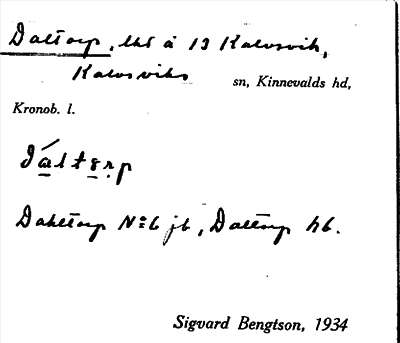 Daltorp, lht å 13 Kalvsvik,
Kalvsviks sn, Kinnevalds hd,
Kronob. l.
Dahltorp No 6 jb, Daltorp hb.
Sigvard Bengtson, 1934